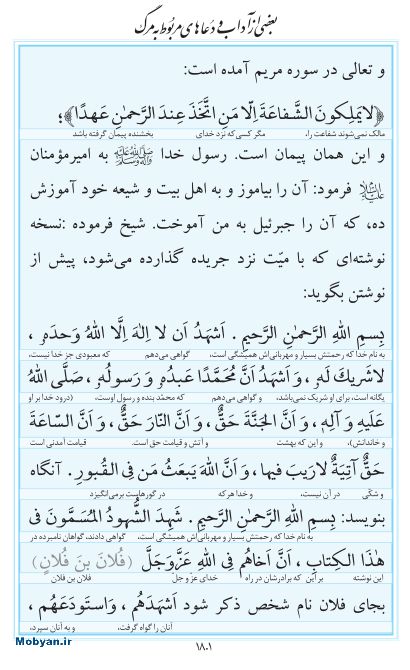 بعضی از آداب و دعاهای مربوط به مرگ
و تعالی در سوره مریم آمده است:
﴿لَا يَمْلِكُونَ الشَّفَاعَةَ إِلَّا مَنِ اتَّخَذَ عِنْدَ الرَّحْمٰنِ عَهْدًا﴾؛
مالک نمی‌شوند شفاعت را، مگر کسی که نزد خدای بخشنده پیمان گرفته باشد
و این همان پیمان است. رسول خدا ﷺ به امیرمؤمنان
علیه‌السلام فرمود: آن را بیاموز و به اهل بیت و شیعه خود آموزش
ده، که آن را جبرئیل به من آموخت. شیخ فرموده :نسخه
نوشته‌ای که با میّت نزد جریده گذارده می‌شود، پیش از
نوشتن بگوید:
بِسْمِ اللهِ الرَّحْمٰنِ الرَّحِيمِ . اَشْهَدُ اَنْ لَا اِلٰهَ اِلَّا اللهُ وَحْدَهُ ،
به نام خدا که رحمتش بسیار و مهربانی‌اش همیشگی است، گواهی می‌دهم که معبودی جز خدا نیست،
لَا شَرِيكَ لَهُ ، وَ اَشْهَدُ اَنَّ مُحَمَّدًا عَبْدُهُ وَ رَسُولُهُ ، صَلَّى اللهُ
یگانه است، برای او شریک نمی‌باشد، و گواهی می‌دهم که محمّد بنده و رسول اوست، (درود خدا بر او
عَلَيْهِ وَ آلِهِ ، وَ اَنَّ الْجَنَّةَ حَقٌّ ، وَ اَنَّ النَّارَ حَقٌّ ، وَ اَنَّ السَّاعَةَ
و خاندانش)، و این که بهشت و آتش و قیامت حق است. قیامت آمدنی است
حَقٌّ آتِيَةٌ لَا رَيْبَ فِيهَا ، وَ اَنَّ اللهَ يَبْعَثُ مَنْ فِى الْقُبُورِ . آنگاه
و شکّی در آن نیست، و خدا هر که در گورهاست برمی‌انگیزد
بنویسد: بِسْمِ اللهِ الرَّحْمٰنِ الرَّحِيمِ . شَهِدَ الشُّهُودُ الْمُسَمَّوْنَ فِى
به نام خدا که رحمتش بسیار و مهربانی‌اش همیشگی است، گواهی دادند، گواهان نامبرده در
هٰذَا الْكِتَابِ ، اَنَّ اَخَاهُمْ فِى اللهِ عَزَّ وَ جَلَّ (فُلَانَ بْنَ فُلَانٍ)
این نوشته بر این که برادرشان در راه خدای عزّ و جل فلان بن فلان
بجای فلان نام شخص ذکر شود اَشْهَدَهُمْ ، وَ اسْتَوْدَعَهُمْ ،
آنان را گواه گرفت، و به آنان سپرد،
Mobyan.ir
۱۸۰۱